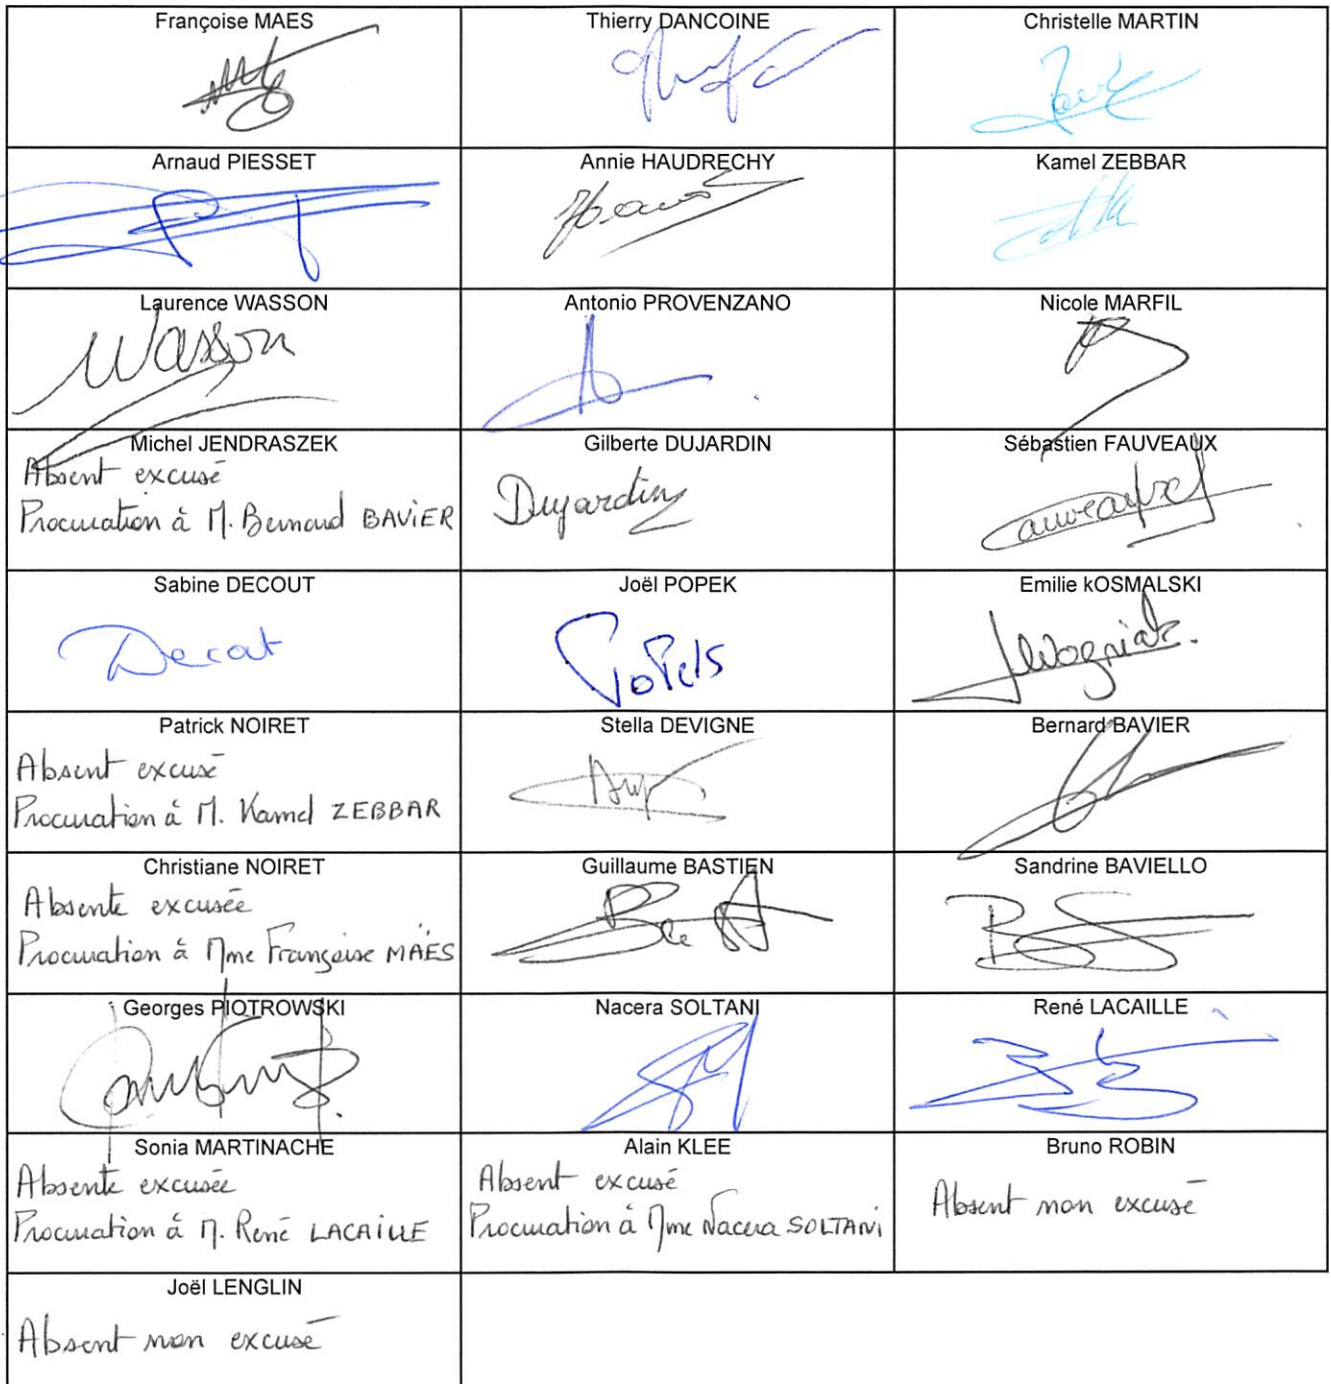 Françoise MAES
Thierry DANCOINE
Christelle MARTIN
Arnaud PIESSET
Annie HAUDRECHY
Kamel ZEBBAR
Laurence WASSON
Wasson
Antonio PROVENZANO
Nicole MARFIL
Michel JENDRASZEK
Absent excusé
Procuration à M. Bernard BAViER
Gilberte DUJARDIN
Dujardin
Sébastien FAUVEAUX
Sabine DECOUT
Joël POPEK
Emilie kOSMALSKI
Patrick NOIRET
Absent excusé
Procuration à M. Kamel ZEBBAR
Stella DEVIGNE
Bernard BAVIER
Christiane NOIRET
Absente excusée
Procuration à Mme Françoise MAES
Guillaume BASTIEN
Sandrine BAVIELLO
Georges PIOTROWSKI
Nacera SOLTANI
René LACAILLE
Sonia MARTINACHE
Absente excusée
Procuration à M. René LACAiLLE
Alain KLEE
Absent excusé
Procuration à Mme Nacera SOLTANi
Bruno ROBIN
Absent non excusé
Joël LENGLIN
Absent non excusé